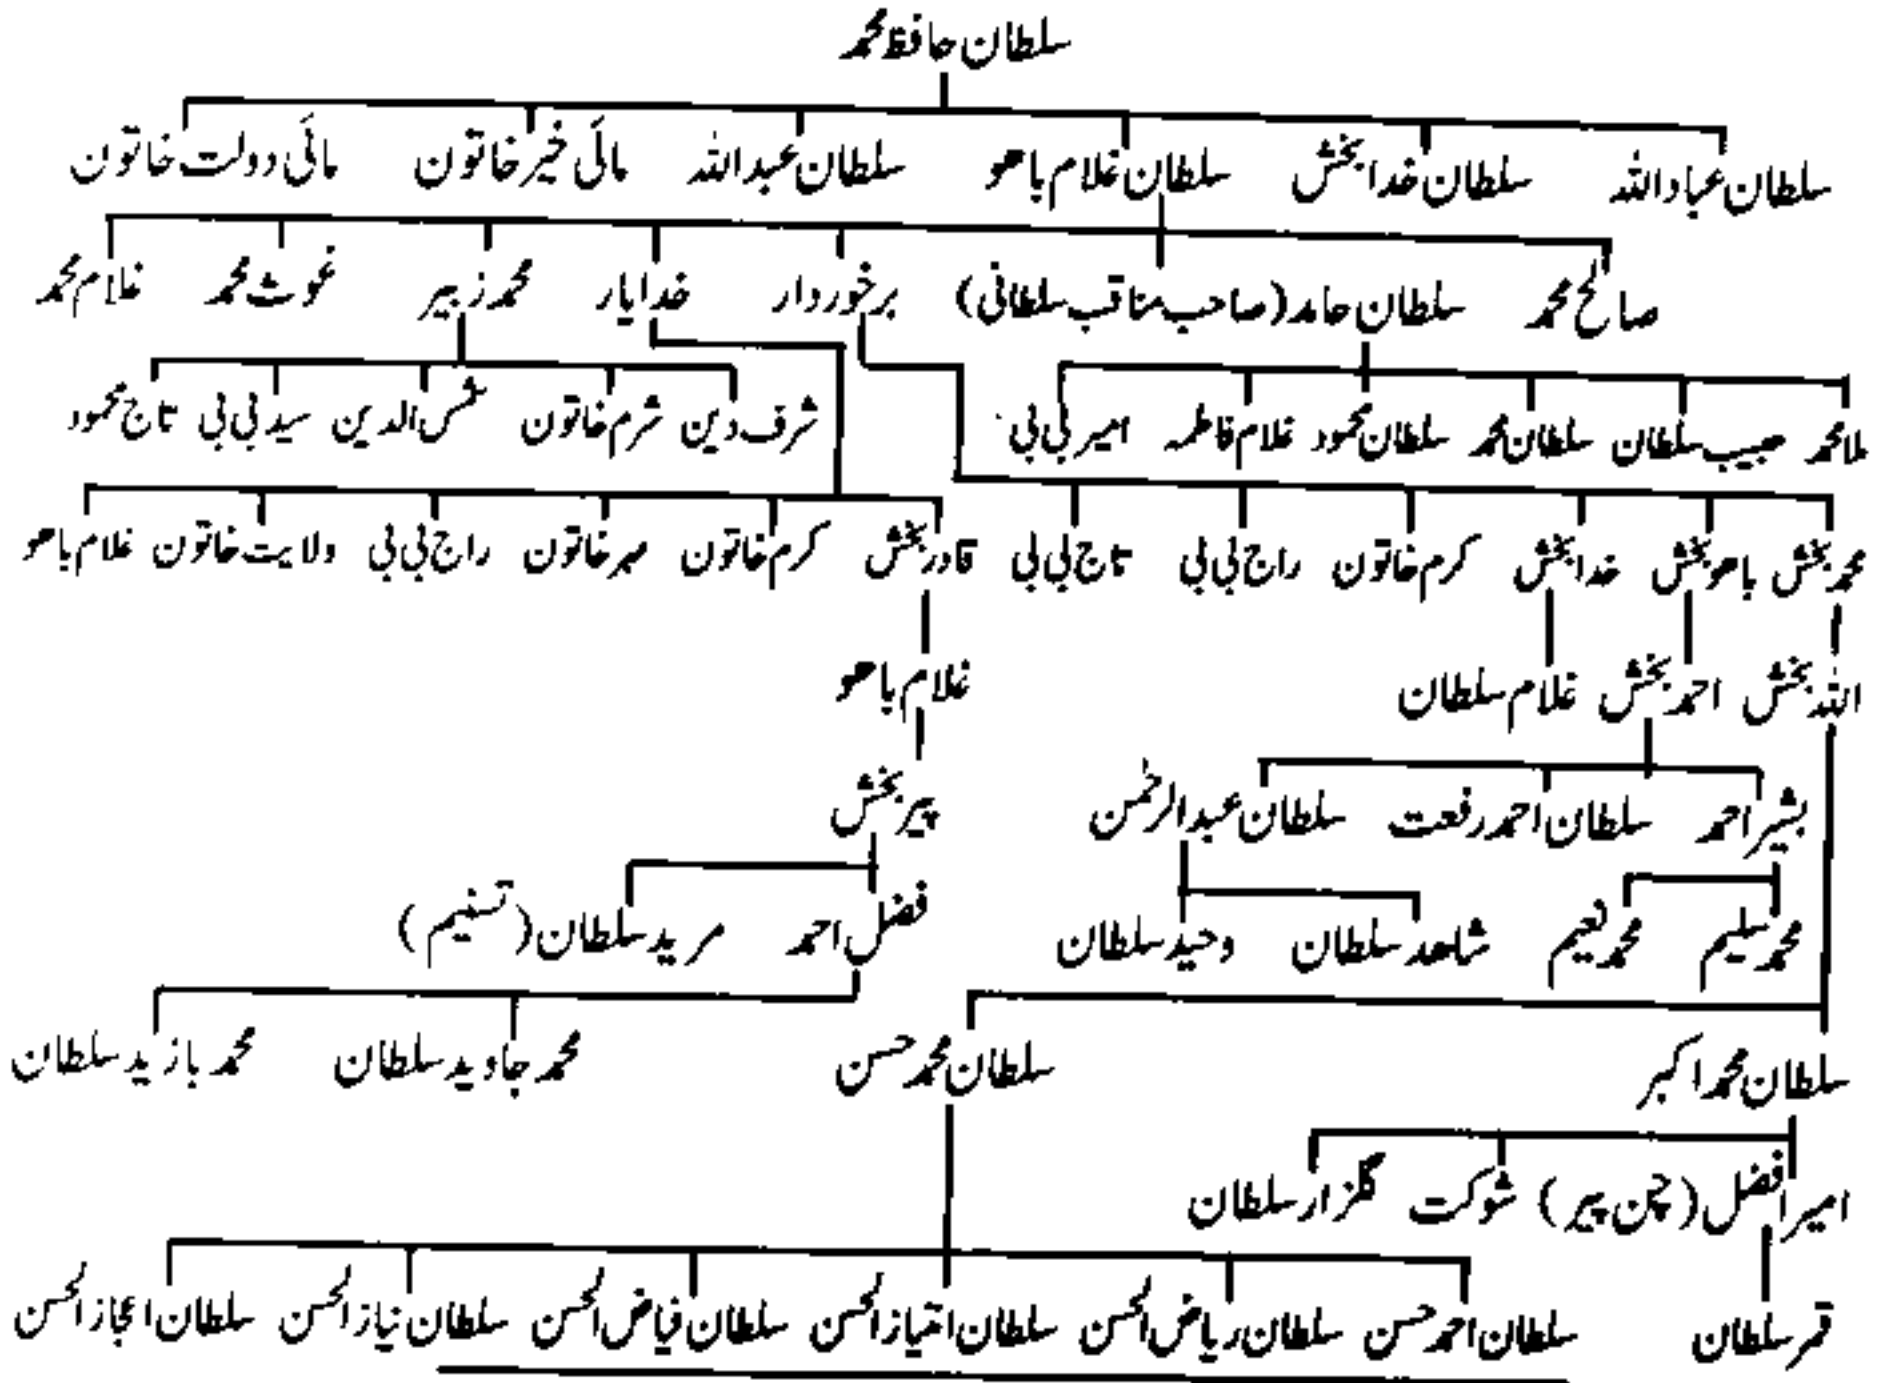 سلطان حافظ محمد
سلطان عباد اللہ سلطان خدا بخش سلطان غلام باھو سلطان عبد اللہ مائی خیر خاتون مائی دولت خاتون
صالح محمد سلطان حامد (صاحب مناقب سلطانی) برخوردار خدا یار محمد زبیر غوث محمد غلام محمد
ملا محمد حبیب سلطان سلطان محمد سلطان محمود غلام فاطمہ امیر بی بی شرف دین شرم خاتون شمس الدین سید بی بی تاج محمود
محمد بخش باھو بخش خدا بخش کرم خاتون راج بی بی تاج بی بی قادر بخش کرم خاتون مہر خاتون راج بی بی ولایت خاتون غلام باھو
اللہ بخش احمد بخش غلام سلطان غلام باھو
بشیر احمد سلطان احمد رفعت سلطان عبد الرحمٰن پیر بخش
محمد سلیم محمد نعیم شاھد سلطان وحید سلطان فضل احمد مرید سلطان (تسنیم)
سلطان محمد اکبر سلطان محمد حسن محمد جاوید سلطان محمد بازید سلطان
امیر افضل (چن پیر) شوکت گلزار سلطان
قمر سلطان سلطان احمد حسن سلطان ریاض الحسن سلطان امتیاز الحسن سلطان فیاض الحسن سلطان نیاز الحسن سلطان اعجاز الحسن